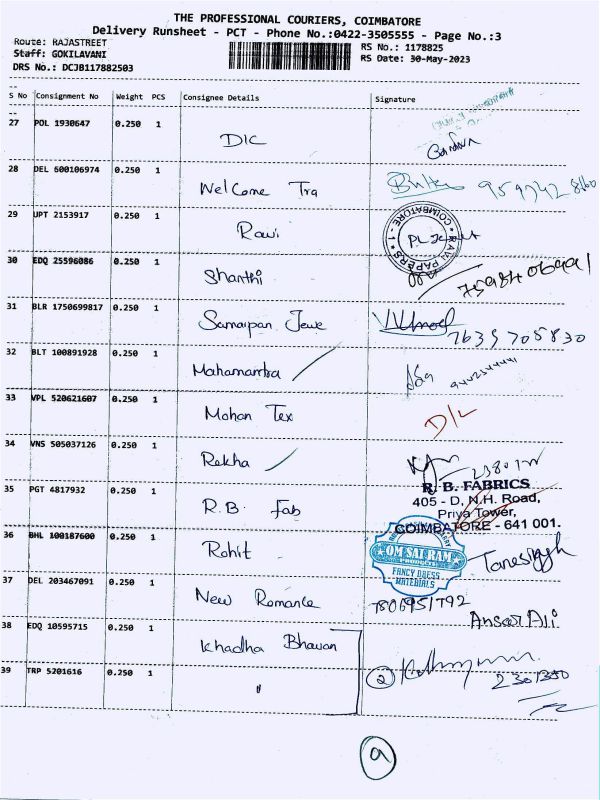 THE PROFESSIONAL COURIERS, COIMBATORE
Delivery Runsheet - PCT - Phone No.:0422-3505555 - Page No.:3
Route: RAJASTREET RS No.: 1178825
Staff: GOKILAVANI RS Date: 30-May-2023
DRS No.: DCJB117882503
S No Consignment No Weight PCS Consignee Details Signature
27 POL 1930647 0.250 1 DIC
28 DEL 600106974 0.250 1 Welcome Tra
29 UPT 2153917 0.250 1 Ravi
COIMBATORE - 1
RAVI PAPERS
30 EDQ 25596086 0.250 1 Shanthi
31 BLR 1750699817 0.250 1 Samarpan Jewe
7639705830
32 BLT 100891928 0.250 1 Mahamantra
33 VPL 520621607 0.250 1 Mohan Tex D/L
34 VNS 505037126 0.250 1 Rekha
35 PGT 4817932 0.250 1 R.B. Fab
R. B. FABRICS
405 - D, N.H. Road,
Priya Tower,
COIMBATORE - 641 001.
36 BHL 100187600 0.250 1 Rohit
OM SAI RAM
PRODUCTS
FANCY DRESS
MATERIALS
37 DEL 203467091 0.250 1 New Romance
Ansar Ali
38 EDQ 10595715 0.250 1 Khadha Bhavan
39 TRP 5201616 0.250 1 "
2
9